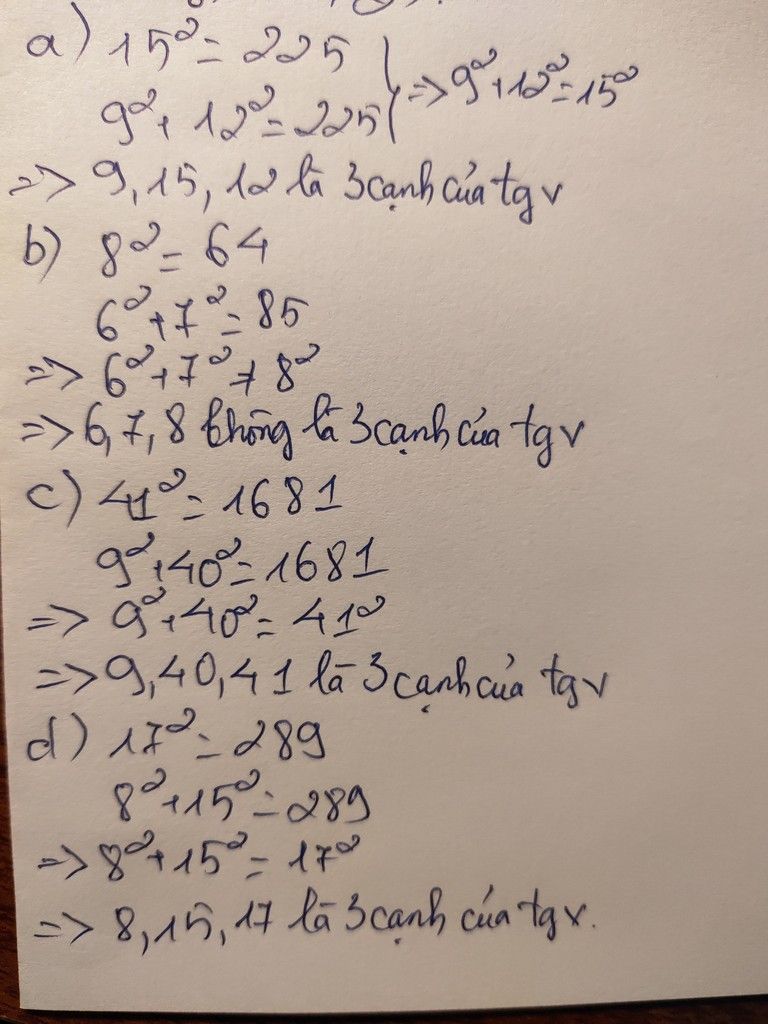 a) 15² = 225
9² + 12² = 225 } => 9² + 12² = 15²
=> 9, 15, 12 là 3 cạnh của tgv
b) 8² = 64
6² + 7² = 85
=> 6² + 7² ≠ 8²
=> 6, 7, 8 không là 3 cạnh của tgv
c) 41² = 1681
9² + 40² = 1681
=> 9² + 40² = 41²
=> 9, 40, 41 là 3 cạnh của tgv
d) 17² = 289
8² + 15² = 289
=> 8² + 15² = 17²
=> 8, 15, 17 là 3 cạnh của tgv.